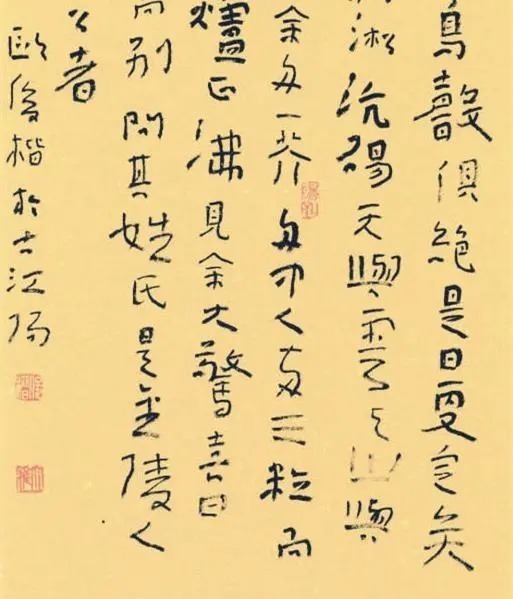 鳥聲俱絕是日更定矣
淞沆碭天與雲与山與
余舟一芥舟中人兩三粒而
爐正沸見余大驚喜曰
而別問其姓氏是金陵人
公者
歐俊楷於古江陽